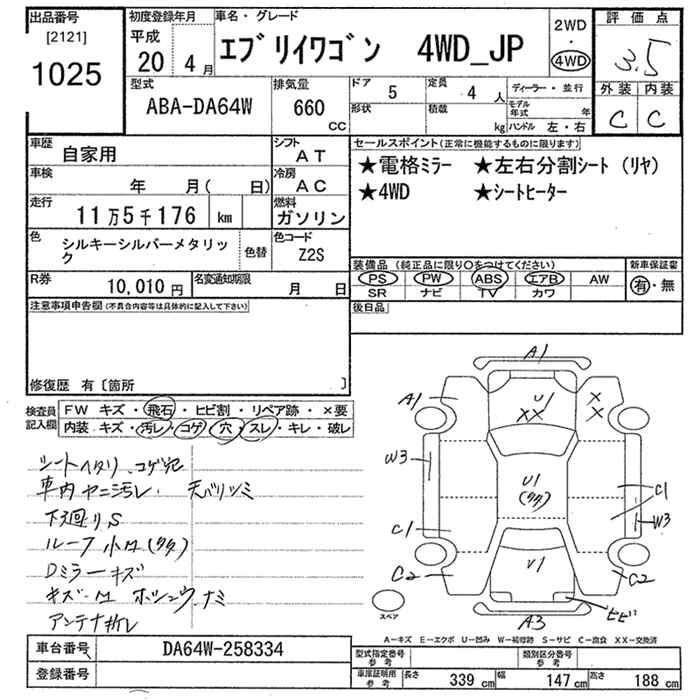 出品番号
[2121]
1025
初度登録年月
平成
20年 4月
車名・グレード
エブリイワゴン 4WD_JP
2WD
・
4WD
評価点
3.5
外装 内装
C C
型式
ABA-DA64W
排気量
660
CC
ドア 5
形状
定員 4 人
積載 kg
ディーラー・並行
モデル年式 年
ハンドル 左・右
車歴 自家用
シフト AT
車検 年 月( 日)
冷房 AC
走行 11万5千176 km
燃料 ガソリン
色 シルキーシルバーメタリック
色替
色コード Z2S
R券 10,010 円
名変通知期限 月 日
セールスポイント(正常に機能するものに限ります)
★電格ミラー ★左右分割シート (リヤ)
★4WD ★シートヒーター
装備品 (純正品に限り○をつけてください)
PS PW ABS エアB AW
SR ナビ TV カワ
新車保証書
有・無
後日品
注意事項申告欄(不具合内容等は具体的に記入して下さい)
修復歴 有〔箇所 〕
検査員記入欄
FW キズ・飛石・ヒビ割・リペア跡・×要
内装 キズ・汚レ・コゲ・穴・スレ・キレ・破レ
シートヘタリ、コゲ穴
車内ヤニ汚レ、天バリシミ
下廻りS
ルーフ小U(多々)
Dミラーキズ
アンテナ折レ
A1
A1
U1
XX
X
X
W3
U1
(多々)
C1
W3
C1
C2
U1
C2
ヒビ
A3
スペア
A-キズ E-エクボ U-凹み W-補修跡 S-サビ C-腐食 XX-交換済
車台番号 DA64W-258334
登録番号
型式指定番号 参考
類別区分番号 参考
車庫証明用 参考
長さ 339 cm 幅 147 cm 高さ 188 cm